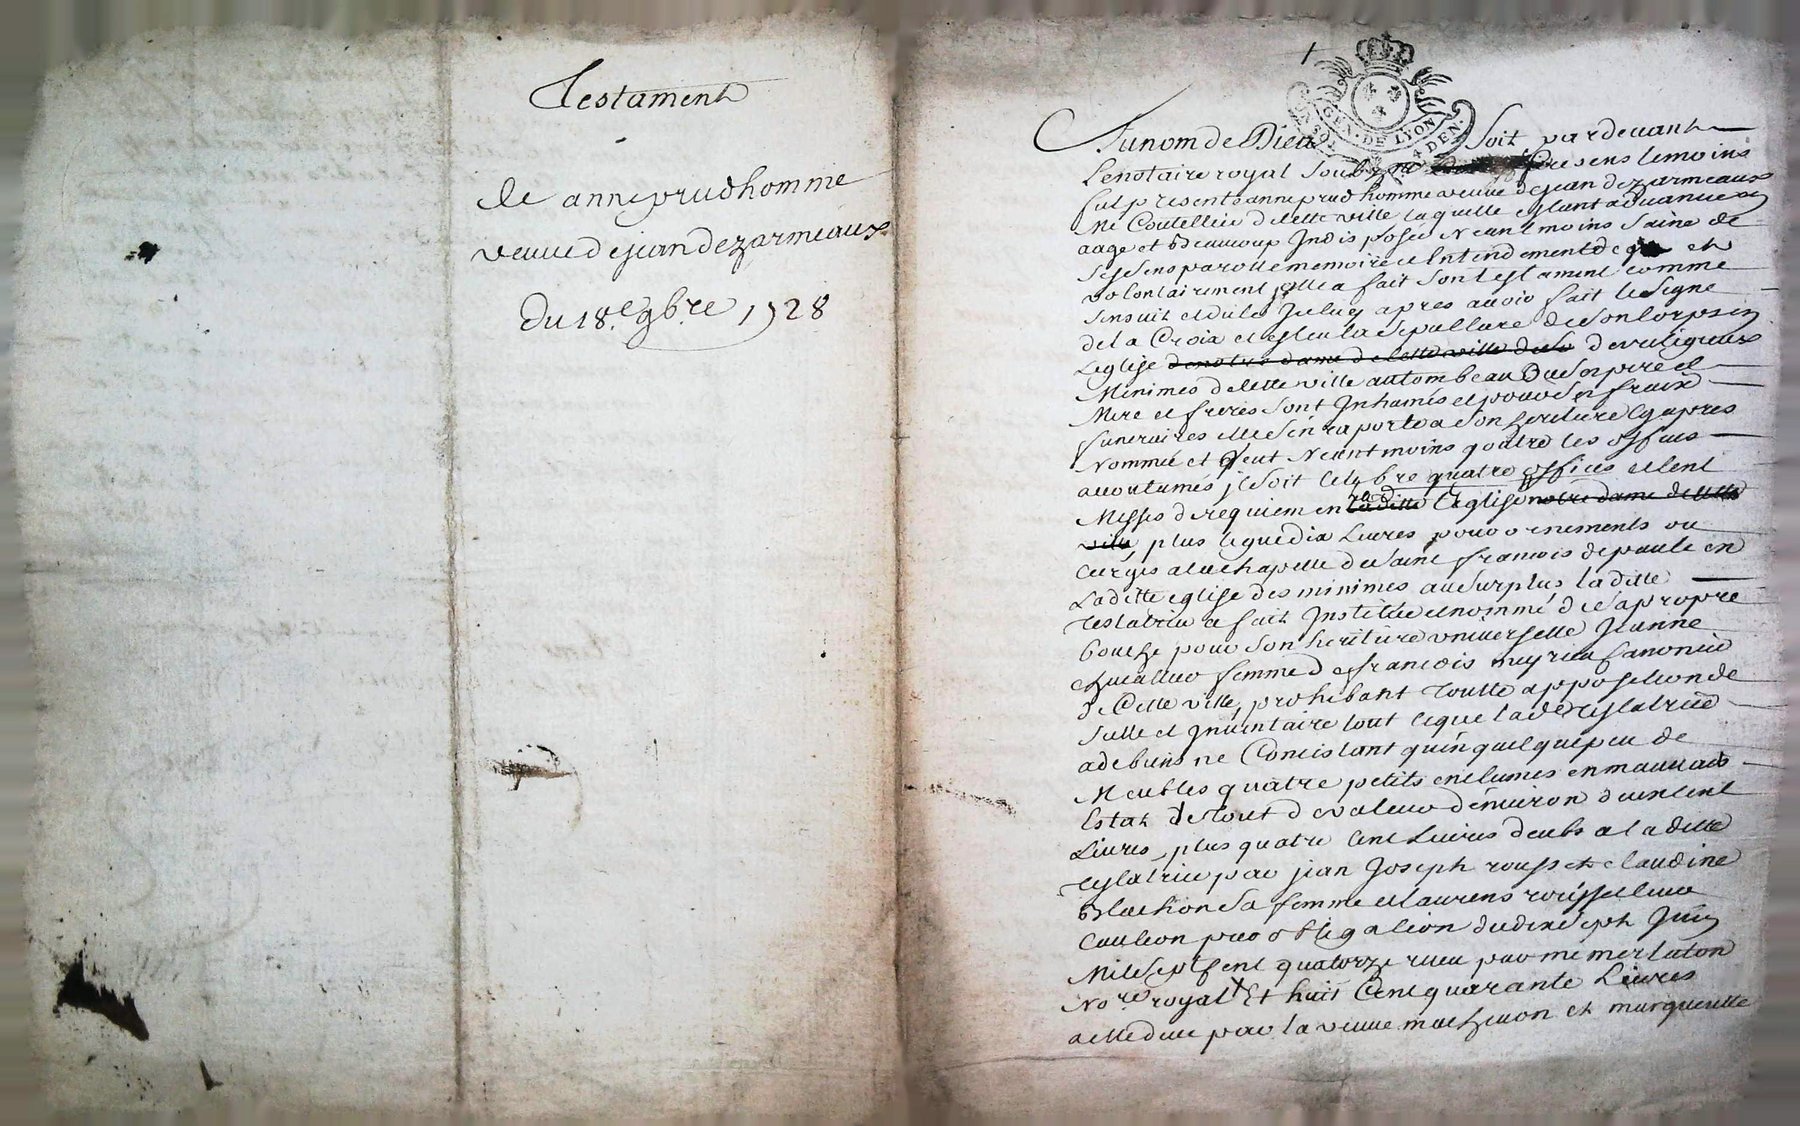 Testament
de anne prudhomme
veuve de jean dezarmeaux
du 18.e 9bre 1728
GEN. DE LYON
4 DEN.
Au nom de Dieu Soit par devant
Le notaire royal Soubz presens temoins
fut presente anne prudhomme veuve de jean dezarmeaux
me Coutellier de cette ville laquelle estant advancée en
aage et beaucoup Indisposée Neantmoins Saine de
Ses Sens parolle memoire et Entendement de et
volontairement elle a fait Son testament comme
Sensuit apres avoir fait le Signe
de la Croix et esleu la Sepulture de Son Corps en
Leglise de notre dame de cette ville de religieux
Minimes de cette ville au tombeau ou Son pere et
Mere et freres Sont Inhumés et pour Ses fraix
funeraires elle Sen raporte a Son heritiere Cyapres
Nommée et veut Neantmoins qoutre les offices
acoutumés il Soit Celebré quatre offices et Cent
Messes de requiem en la ditte Eglise notre dame de cette
ville, plus legue dix Livres pour ornements ou
Cierges a la chapelle de Saint francois de paule en
Laditte eglise des minimes au Surplus laditte
testatrice a fait Institué et nommé de Sa propre
bouche pour Son heritiere universelle Jeanne
femme de francois meyrieu
de Cette ville, prohibant toutte apposition de
Sellé et Inventaire tout ce que lade testatrice
a de biens ne Consistant quen quelque peu de
Meubles quatre petits enclumes en mauvais
Estat le tout de valeur denviron deux cent
Livres, plus quatre Cent Livres deubs a la ditte
testatrice par jean Joseph rousset claudine
blachon Sa femme et laurens
Caution par obligation du Juin
Mil Sept Cent quatorze receu par me merlaton
No.re royal Et huit Cent quarante Livres
a elle deue par la veuve et margueritte